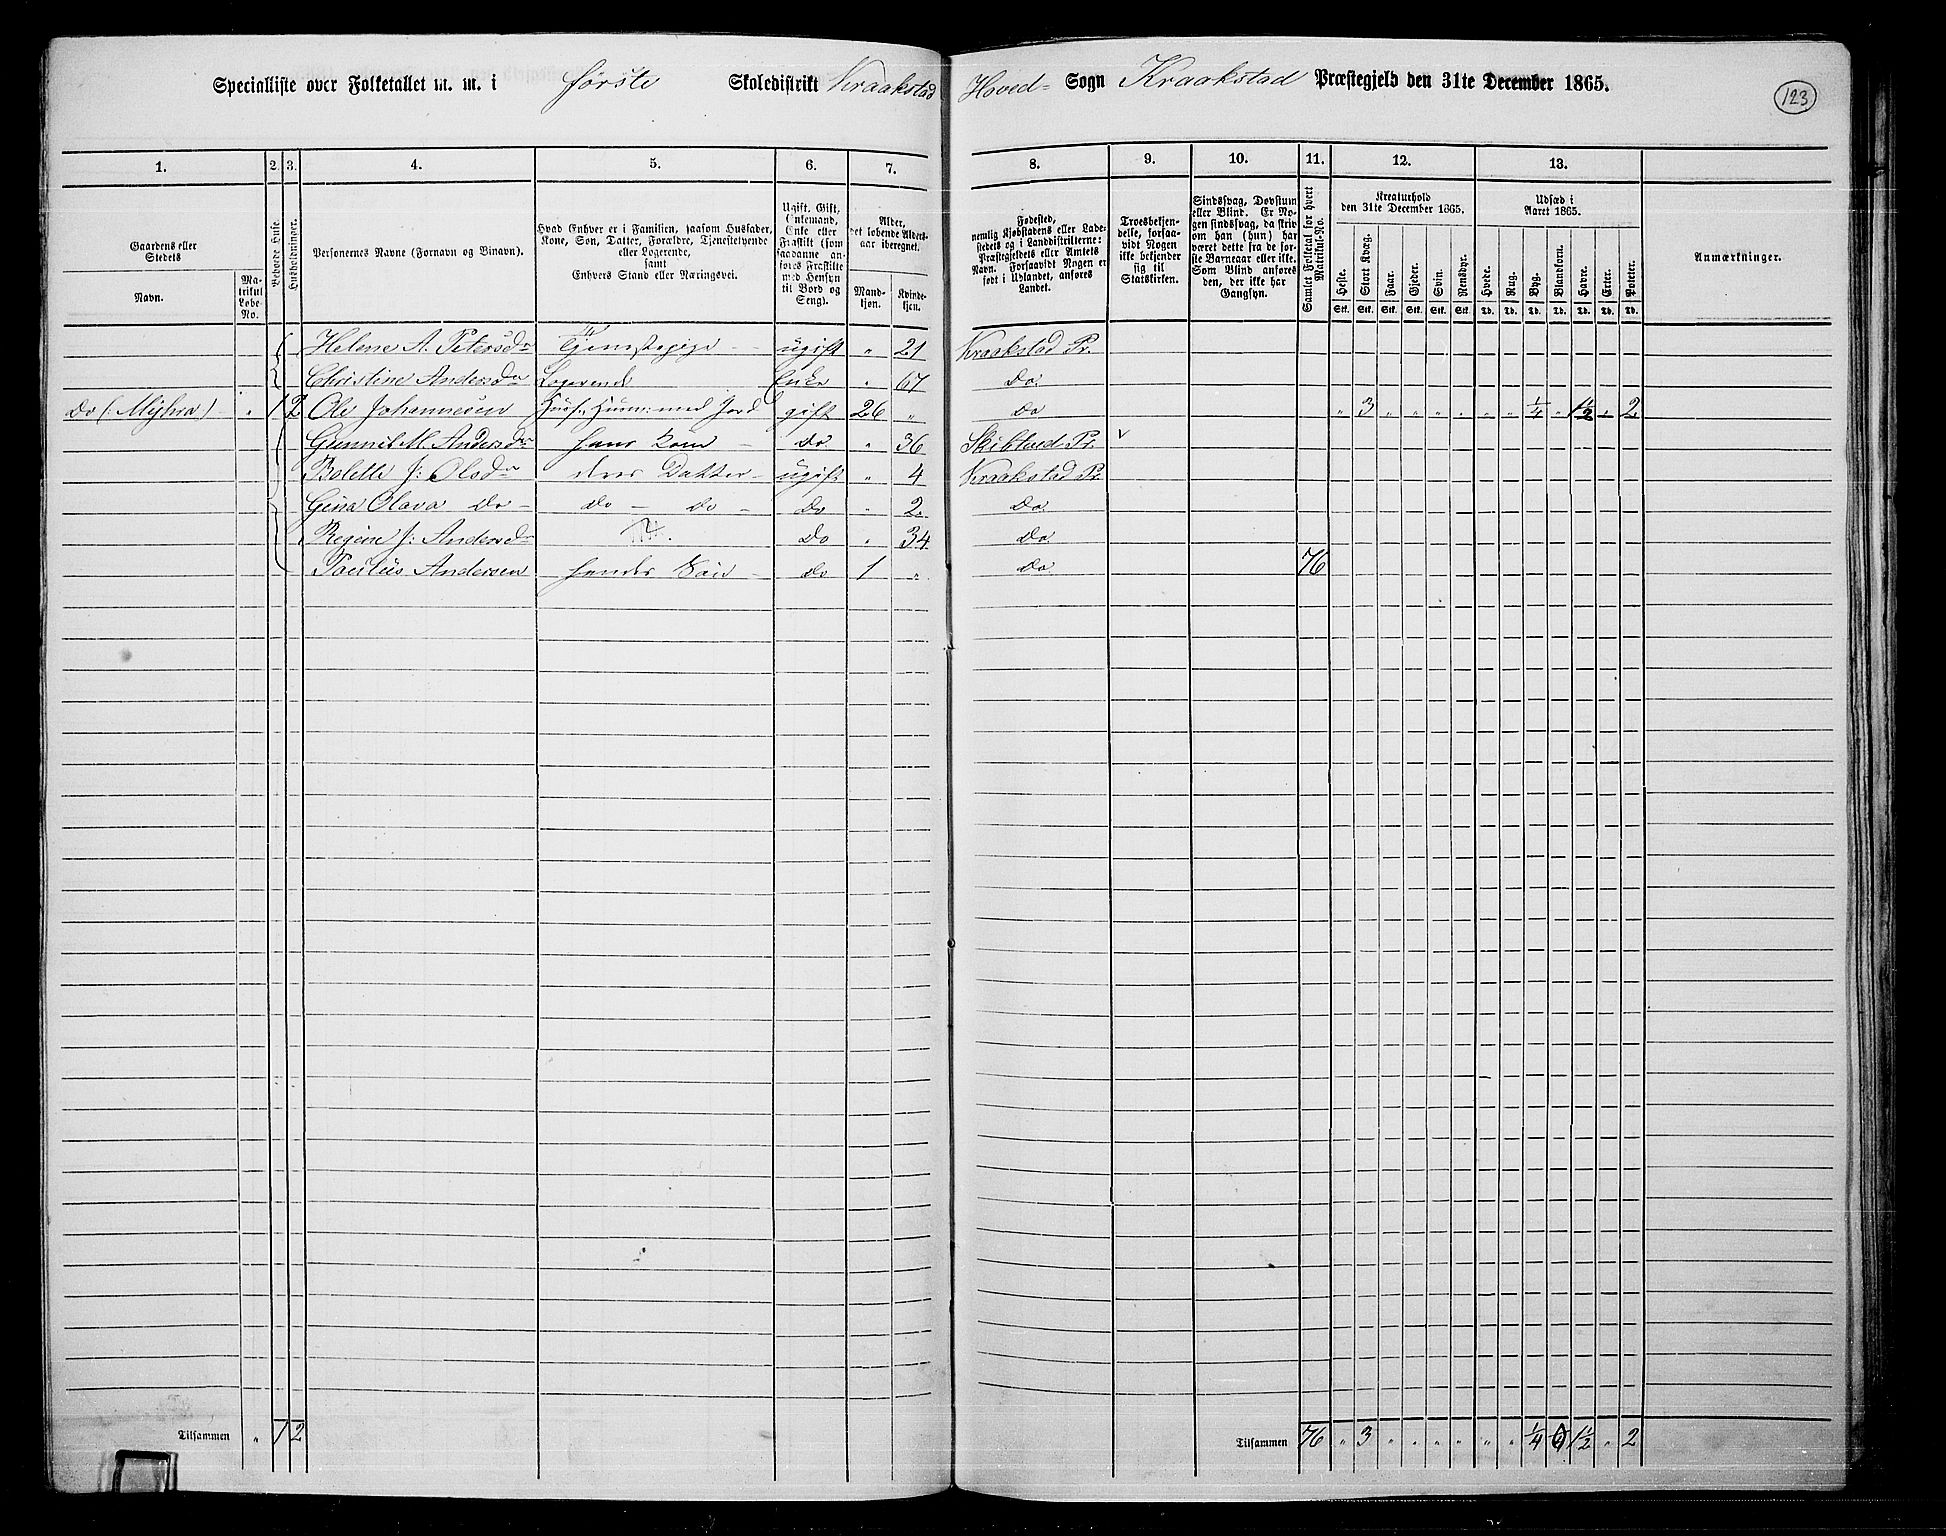 Specialliste over Folketallet m. m. i første Skoledistrikt Kraakstad Hoved= Sogn Kraakstad Præstegjeld den 31te December 1865.
123
1. 2. 3. 4. 5. 6. 7. 8. 9. 10. 11. 12. 13.
Gaardens eller Stedets
Navn.
Matrikul Løbe-No.
Beboede Huse.
Husholdninger.
Personernes Navne (Fornavn og Binavn).
Hvad Enhver er i Familien, saasom Husfader, Kone, Søn, Datter, Forældre, Tjenestetyende eller Logerende, samt Enhvers Stand eller Næringsvei.
Ugift, Gift, Enkemand, Enke eller Fraskilt (som saadanne anføres Fraskilte med Hensyn til Bord og Seng).
Alder, det løbende Aldersaar iberegnet.
Mandkjøn.
Kvindekjøn.
Fødested, nemlig Kjøbstadens eller Ladestedets og i Landdistrikterne: Præstegjeldets eller Amtets Navn. Forsaavidt Nogen er født i Udlandet, anføres Landet.
Troesbekjendelse, forsaavidt Nogen ikke bekjender sig til Statskirken.
Sindssvag, Døvstum eller Blind. Er Nogen sindssvag, da skrives om han (hun) har været dette fra de første Barneaar eller ikke. Som Blind anføres den, der ikke har Gangsyn.
Samlet Folketal for hvert Matrikul-No.
Kreaturhold den 31te December 1865.
Heste. Stort Kvæg. Faar. Gjeder. Svin. Rensdyr.
Stk. Stk. Stk. Stk. Stk. Stk.
Udsæd i Aaret 1865.
Hvede. Rug. Byg. Blandkorn. Havre. Erter. Poteter.
Td. Td. Td. Td. Td. Td. Td.
Anmærkninger.
Helene A. Petersdr Tjenestepige - ugift " 21 Kraakstad Pr.
Christine Andersdr Logerende Enke " 67 Do.
Do (: Myhra) " 1 2 Ole Johannesen Husf., Huum: med Jord gift 26 " Do " 3 " " " " " " 1/4 " 1 1/2 " 2
Gunnil M. Andersdr hans Kone - Do. " 36 Skibtved Pr. v
Bolette J: Olsdr deres Datter - ugift " 4 Kraakstad Pr.
Gina Olava Do - Do - Do - Do " 2. Do.
Regine J: Andersdr Do " 34 Do
Paulus Andersen hendes Søn - Do 1 " Do 76
Tilsammen " 1 2
Tilsammen 76 " 3 " " " " " " 1/4 1 1/2 " 2